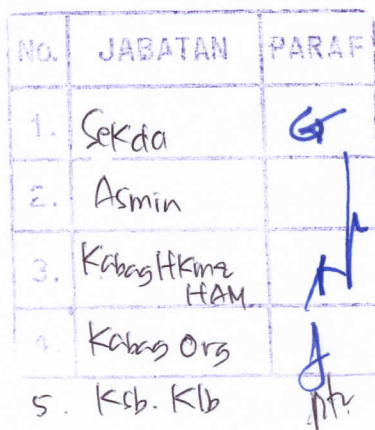 No. JABATAN PARAF
1. Sekda
2. Asmin
3. Kabag HKm&
HAM
4. Kabag Org
5. Ksb. Klb